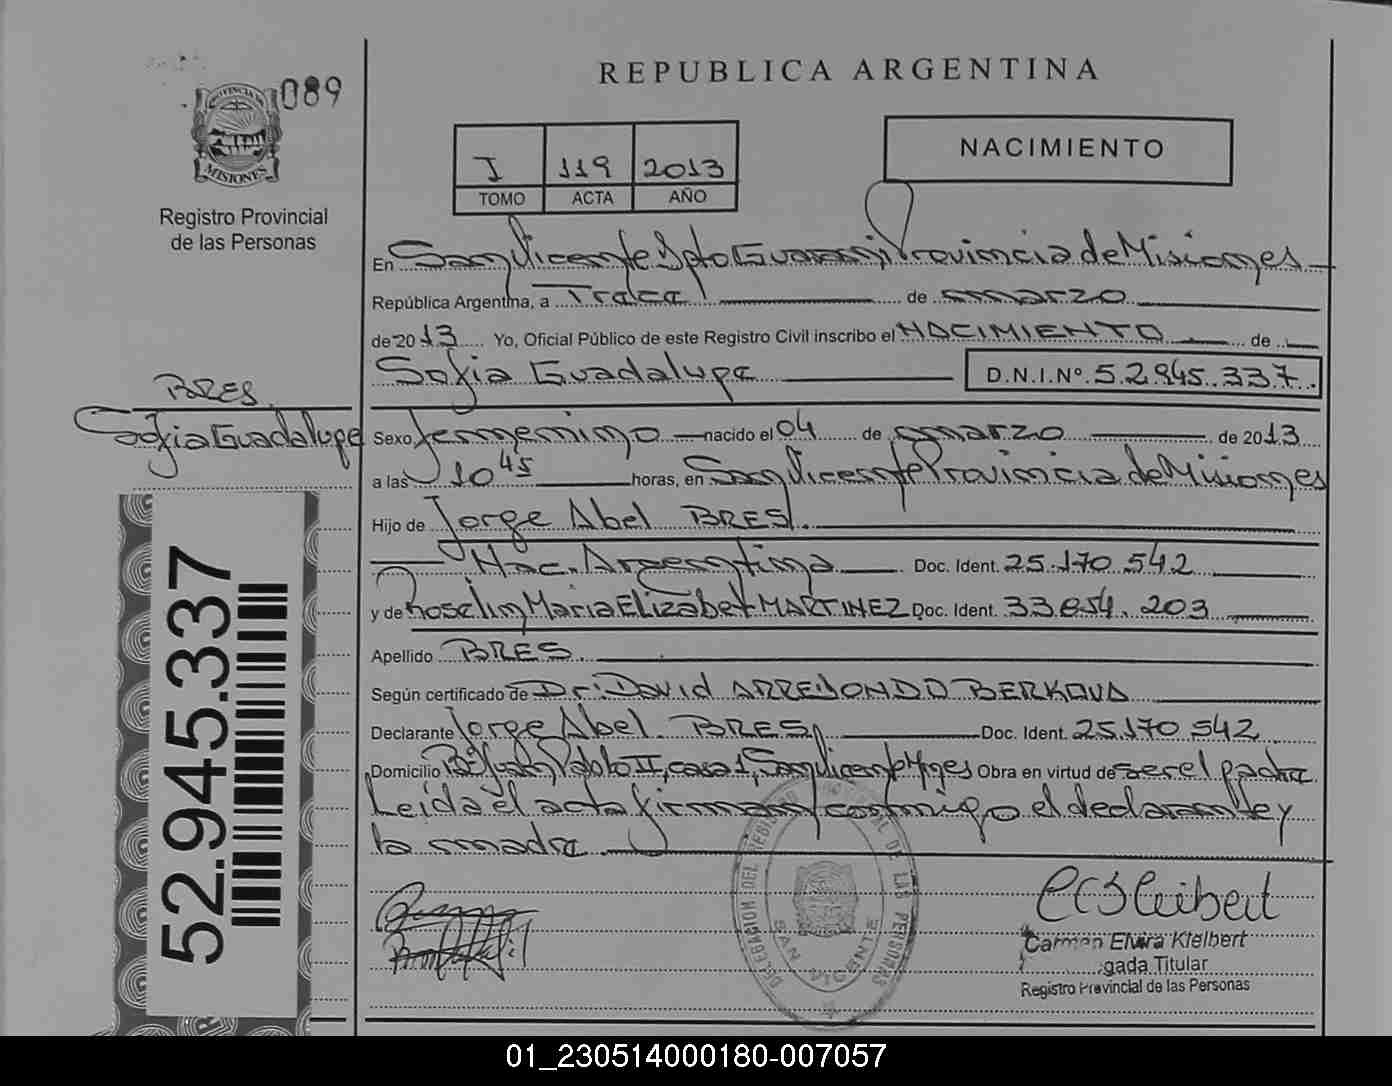 089
PROVINCIA DE
MISIONES
Registro Provincial
de las Personas
REPUBLICA ARGENTINA
I 119 2013
TOMO ACTA AÑO
NACIMIENTO
En San Vicente Dpto Guarani Provincia de Misiones
República Argentina, a Trece de marzo
de 2013 Yo, Oficial Público de este Registro Civil inscribo el NACIMIENTO de
Sofia Guadalupe D.N.I.Nº 52.945.337
BRES
Sofia Guadalupe
Sexo femenino nacido el 04 de marzo de 2013
a las 10 45 horas, en San Vicente Provincia de Misiones
Hijo de Jorge Abel BRES
Nac. Argentina Doc. Ident. 25.170.542
y de Roselin Maria Elizabet MARTINEZ Doc. Ident. 33.854.203
Apellido BRES
Según certificado de Dr. David ARREDONDO BERKOVA
Declarante Jorge Abel BRES Doc. Ident. 25.170.542
Domicilio Bº Juan Pablo II, casa 1, San Vicente Mnes Obra en virtud de ser el padre
Leida el acta firman conmigo el declarante y
la madre
52.945.337
DELEGACION DEL REGISTRO PROVINCIAL DE LAS PERSONAS
SAN VICENTE
Carmen Elvira Kleibert
gada Titular
Registro Provincial de las Personas
01_230514000180-007057